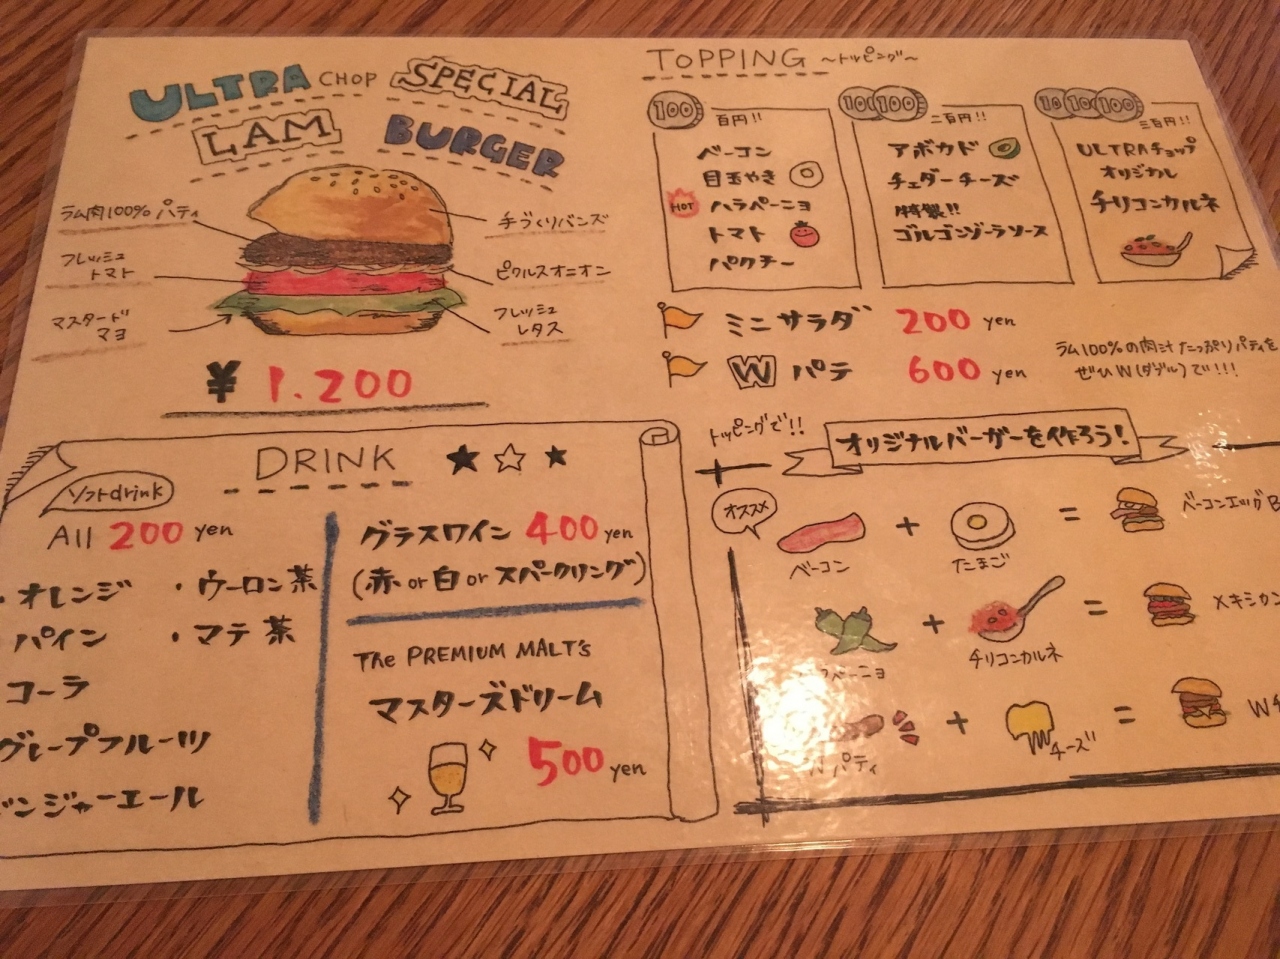 ULTRA CHOP SPECIAL
LAM BURGER
ラム肉100% パティ
フレッシュ
トマト
マスタード
マヨ
手づくりバンズ
ピクルスオニオン
フレッシュ
レタス
¥ 1.200
TOPPING 〜トッピング〜
100
百円!!
ベーコン
目玉やき
HOT ハラペーニョ
トマト
パクチー
100
二百円!!
アボカド
チェダーチーズ
特製!!
ゴルゴンゾーラソース
100
三百円!!
ULTRAチョップ
オリジナル
チリコンカルネ
ミニサラダ 200 yen
W パテ 600 yen
ラム100%の肉汁たっぷりパティを
ぜひW(ダブル)で!!!
DRINK
ソフトdrink
All 200 yen
・オレンジ ・ウーロン茶
パイン ・マテ茶
コーラ
グレープフルーツ
ジンジャーエール
グラスワイン 400 yen
(赤 or 白 or スパークリング)
The PREMIUM MALT's
マスターズドリーム
500 yen
トッピングで!!
オリジナルバーガーを作ろう!
オススメ
+ = ベーコンエッグB
ベーコン たまご
+ = メキシカン
ペーニョ チリコンカルネ
+ = Wチ
W パティ チーズ